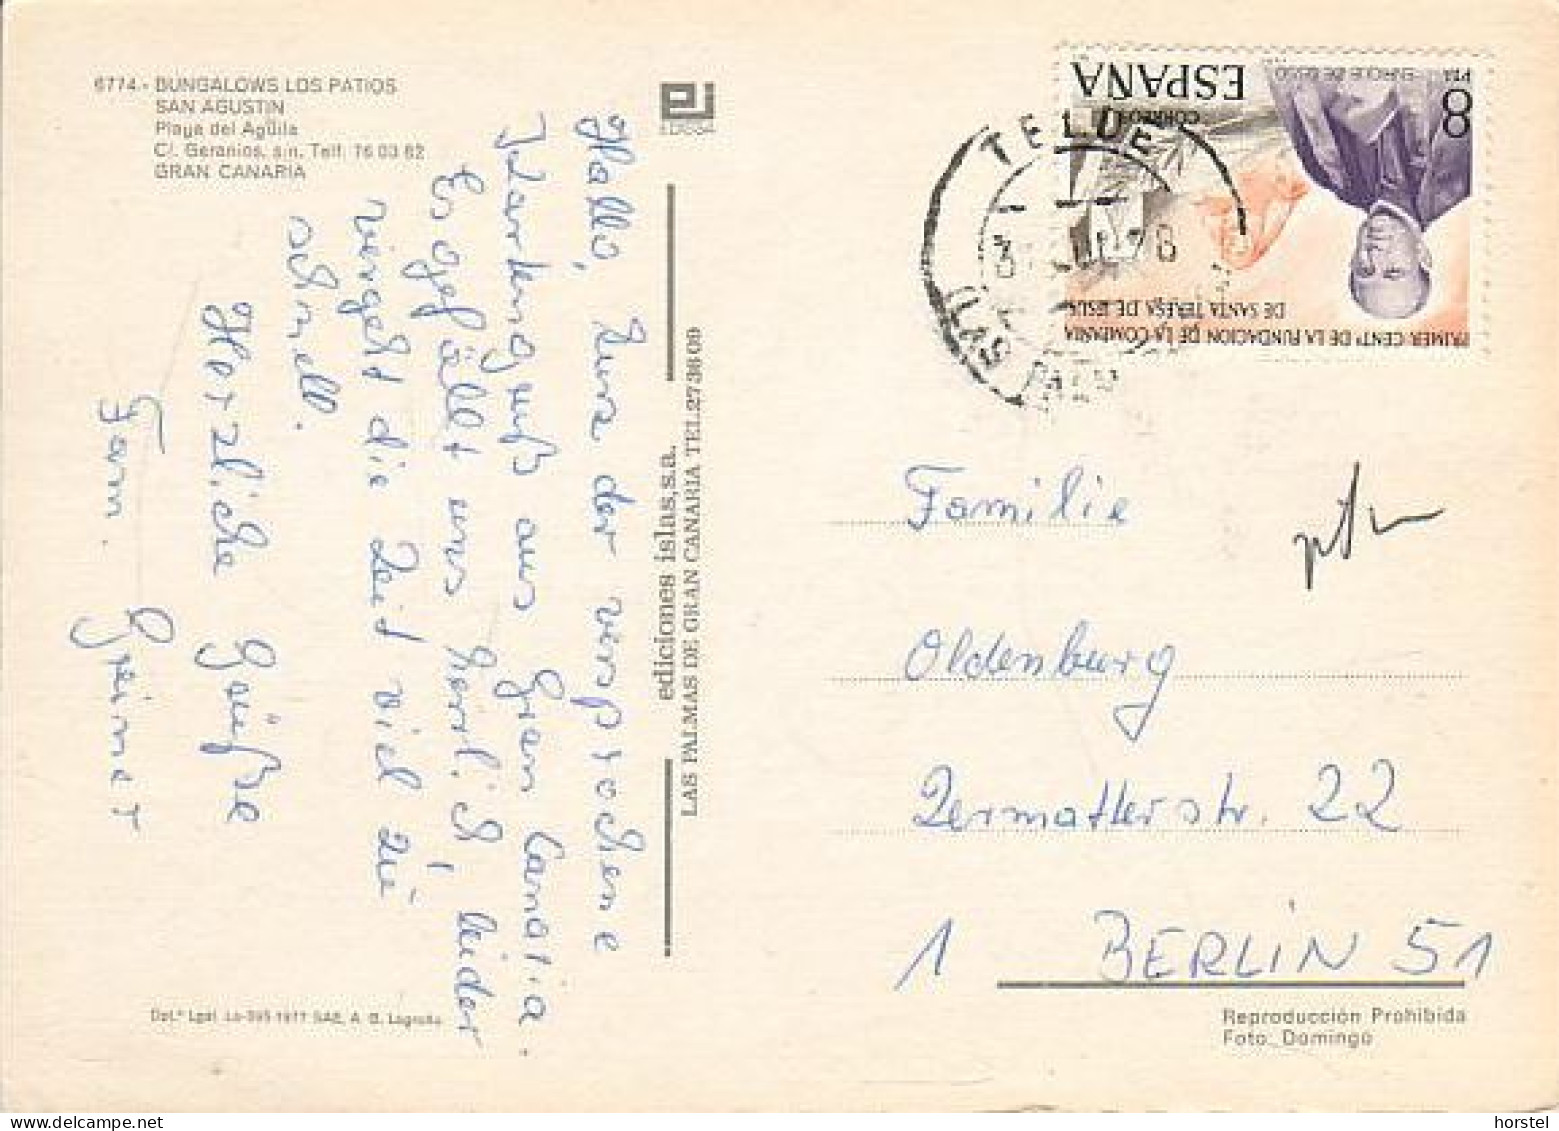 6774.- BUNGALOWS LOS PATIOS
SAN AGUSTIN
Playa del Agüila
C/. Geranios, s/n. Telf: 76 03 62
GRAN CANARIA
EDICOSA
Hallo, hura der versprochene
Wartengruß aus Gran Canaria.
Es gefällt uns herrlich, leider
vergeht die Zeit viel zu
schnell.
Herzliche Grüße
Fam. Greinert
ediciones islas,s.a.
LAS PALMAS DE GRAN CANARIA TEL.273609
Dpt.º Lgal. Lo-395-1977 SAE, A. G. Logroño
ESPAÑA
CORREOS
8
PTA
ENRIQUE DE OSSO
PRIMER CENTº DE LA FUNDACION DE LA COMPAÑIA
DE SANTA TERESA DE JESUS
TELDE
31 JUL 78
(LAS PALMAS)
Familie
Oldenburg
Zermatterstr. 22
1 BERLIN 51
Reproducción Prohibida
Foto: Domingo
horstel